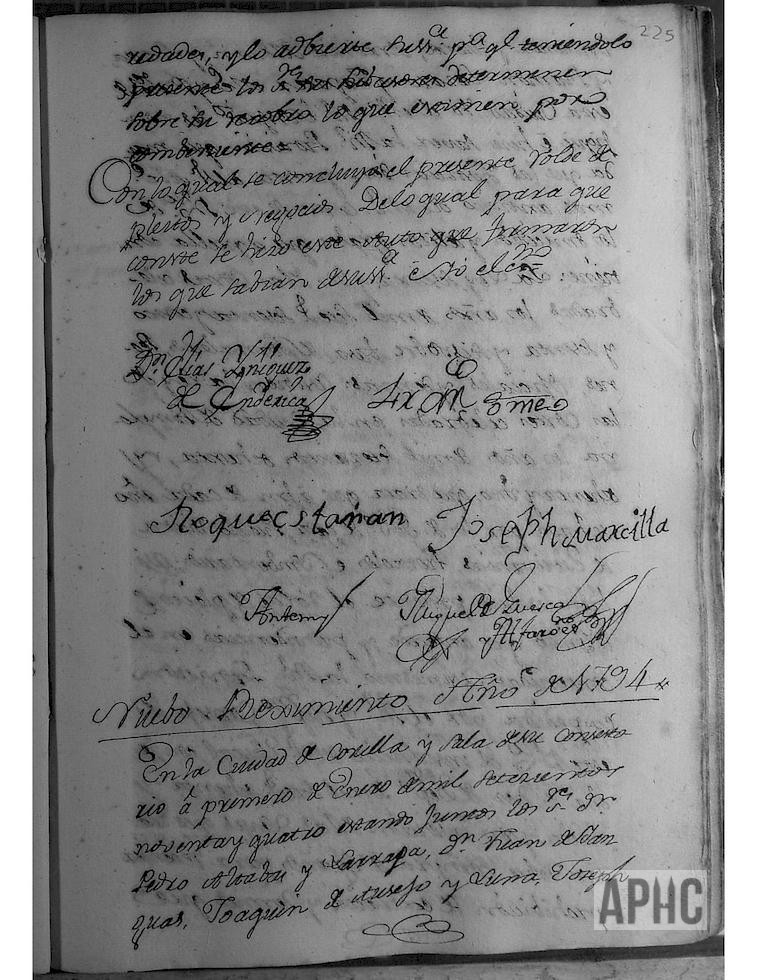 225
redades, y lo advierte su Sª pª qe teniendolo
presente los Sres sus subcesores determinen
sobre su recobro lo que examinen por
combeniente
Con lo qual se concluyó el presente Rolde de
pleitos y negocios Delo qual para que
conste se hizo este Auto que firmaron
los que sabian de su Sª e Yo el essno
Dn Elias Yñiguez
de Enderica
Roque Estañan
Joseph Marcilla
Antemy
Miguel de Huesca
y Alfaro essno
Nuebo Reximiento Año de 1794
En la Ciudad de Corella y Sala de su Consisto
rio â primero de Enero de mil setecientos
noventa y quatro estando Juntos los Sres Dn
Pedro Alabas y Larraga, Dn Juan de San
guas, Joaquin de Ausejo y Luna, Joseph
APHC